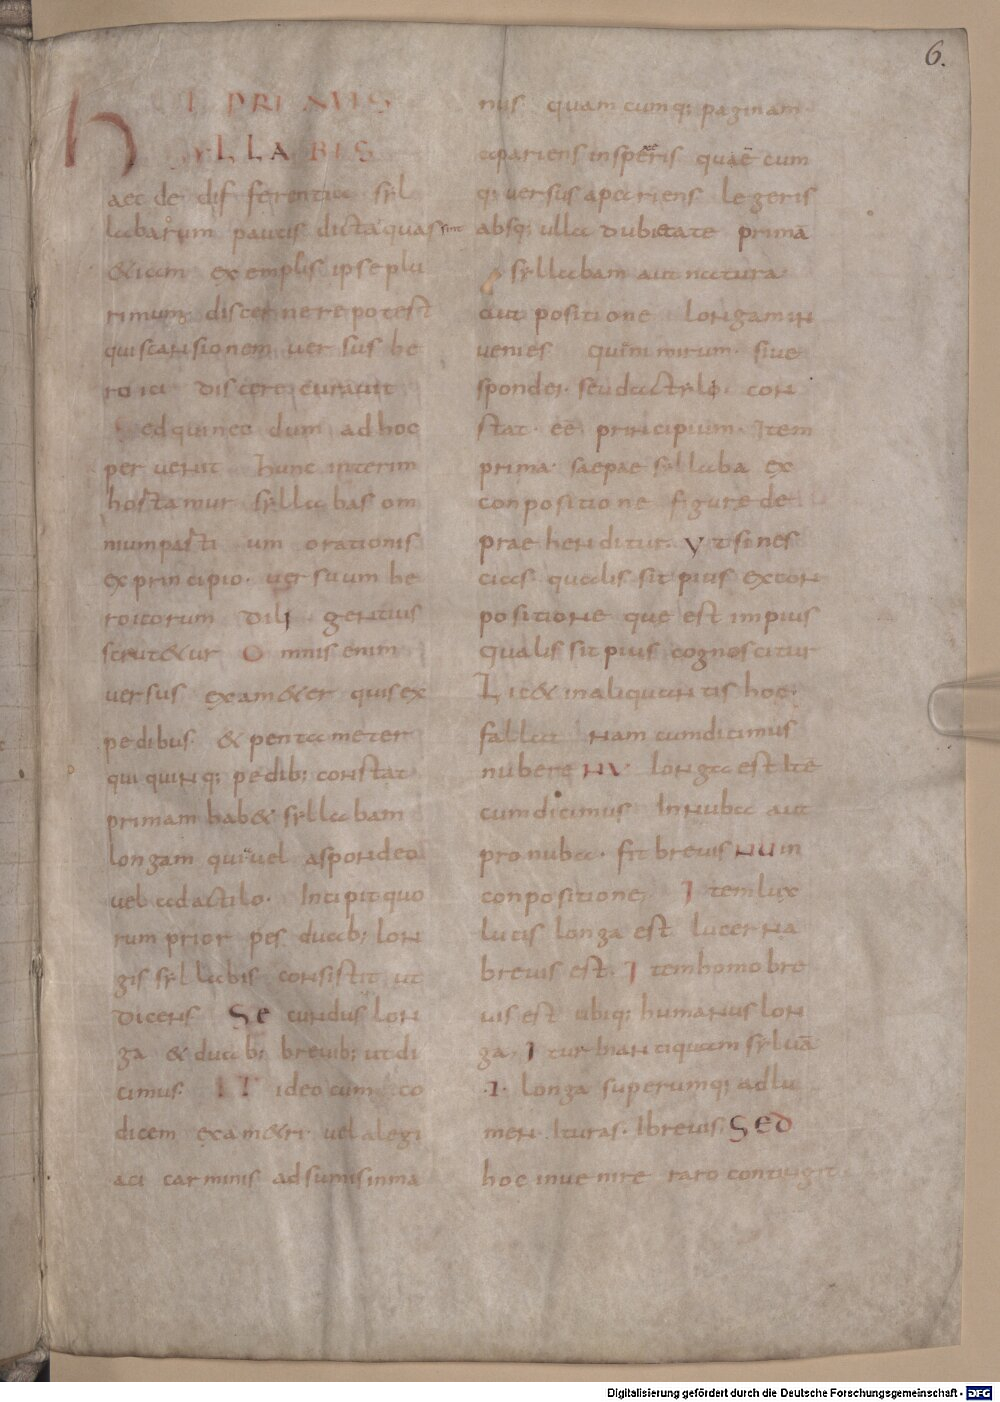 6.
DE PRIMIS
SYLLABIS
Haec de differentia syl
labarum paucis dicta quas sint
& iam exemplis ipse plu
rimum discernere potest
qui scansionem versus he
roici discere curavit
Sed qui necdum ad hoc
pervenit hunc interim
hostamur syllabas om
nium partium orationis
ex principio versuum he
roicorum diligentius
scrut&ur Omnis enim
versus examet&er qui sex
pedibus & pentameter
qui quinq; pedib; constat
primam hab& syllabam
longam quia vel a spondeo
vel a dactilo. Incipit quo
rum prior pes duab; lon
gis syllabis consistit ut
dicens Secundus lon
ga & duab; brevib; ut di
cimus. ideo cum co
dicem exam&ri vel alegi
aci carminis adsumis in ma
nus quamcumq; paginam
apariens insperis quae cum
q; versus apariens legeris
absq; ulla dubietate primā
syllabam aut natura
aut positione longam in
venies quini mirum. sive
spondei. seu dactylo. con
stat. eē principium. Item
prima saepae syllaba ex
conpositione figure de
praehenditur. ut si nes
cias qualis sit pius ex con
positione que est impius
qualis sit pius cognoscitur
Lic& in aliquantis hoc
fallat nam cum dicimus
nubere NV longa est ite
cum dicimus Innuba aut
pronuba. fit brevis NU in
conpositione, Item lux
lucis longa est lucerna
brevis est. Item homo bre
vis est ubiq; humanus lon
ga. Itur in antiquam sylvā
.I. longa superumq; ad lu
men. Ituras. I brevis. Sed
hoc invenire raro contingit